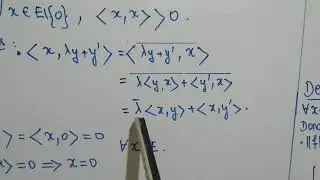 ∀ x ∈ E\{0}, <x, x> > 0.
: • <x, λy+y'> = \overline{<λy+y', x>}
= \overline{λ<y, x> + <y', x>}
= \overline{λ}<x, y> + <x, y'>.
> = <x, 0> = 0 ∀ x E.
> = 0 ⟹ x = 0
De
∀x
Donc